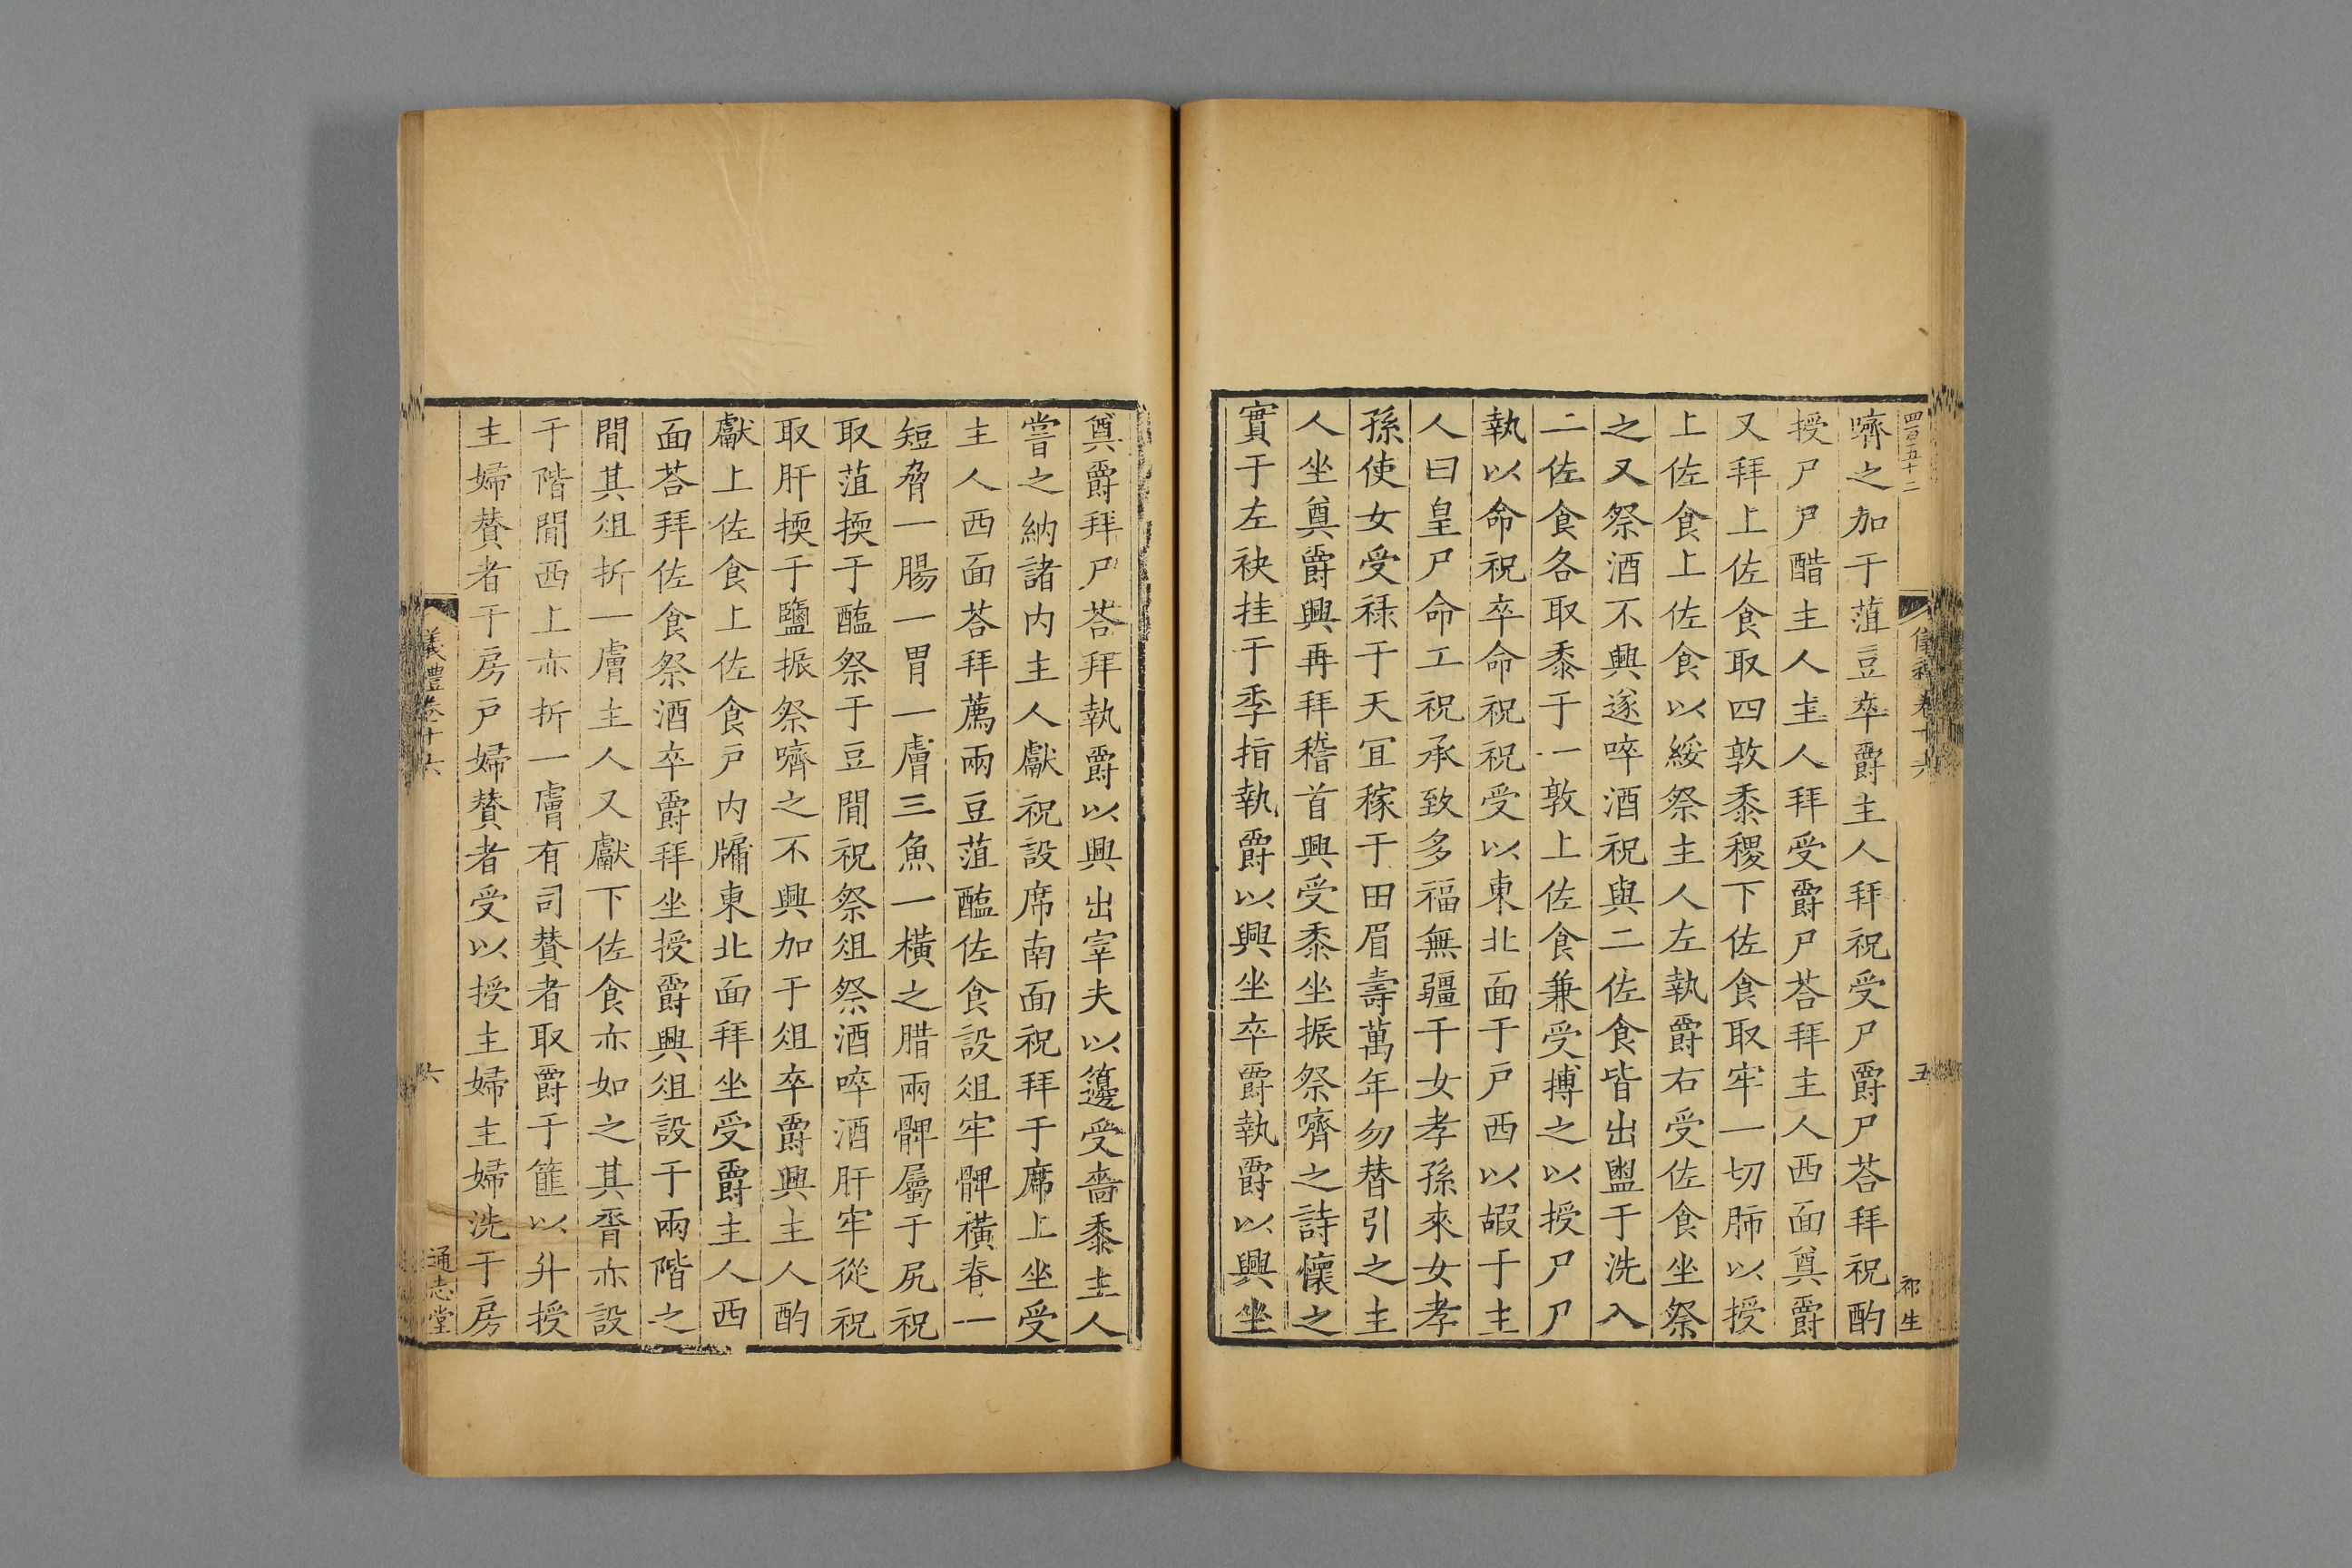 四百五十二
儀禮卷十六
五
祁生
嚌之加于菹豆卒爵主人拜祝受尸爵尸荅拜祝酌
授尸尸醋主人主人拜受爵尸荅拜主人西面奠爵
又拜上佐食取四敦黍稷下佐食取牢一切肺以授
上佐食上佐食以綏祭主人左執爵右受佐食坐祭
之又祭酒不興遂啐酒祝與二佐食皆出盥于洗入
二佐食各取黍于一敦上佐食兼受摶之以授尸尸
執以命祝卒命祝祝受以東北面于戶西以嘏于主
人曰皇尸命工祝承致多福無疆于女孝孫來女孝
孫使女受祿于天宜稼于田眉壽萬年勿替引之主
人坐奠爵興再拜稽首興受黍坐振祭嚌之詩懷之
實于左袂挂于季指執爵以興坐卒爵執爵以興坐
奠爵拜尸荅拜執爵以興出宰夫以籩受嗇黍主人
嘗之納諸内主人獻祝設席南面祝拜于席上坐受
主人西面荅拜薦兩豆菹醢佐食設俎牢髀橫脊一
短脅一腸一胃一膚三魚一橫之腊兩髀屬于尻祝
取菹擩于醢祭于豆閒祝祭俎祭酒啐酒肝牢從祝
取肝擩于鹽振祭嚌之不興加于俎卒爵興主人酌
獻上佐食上佐食戶内牖東北面拜坐受爵主人西
面荅拜佐食祭酒卒爵拜坐授爵興俎設于兩階之
閒其俎折一膚主人又獻下佐食亦如之其脀亦設
于階閒西上亦折一膚有司贊者取爵于篚以升授
主婦贊者于房戶婦贊者受以授主婦主婦洗于房
儀禮卷十六
六
通志堂